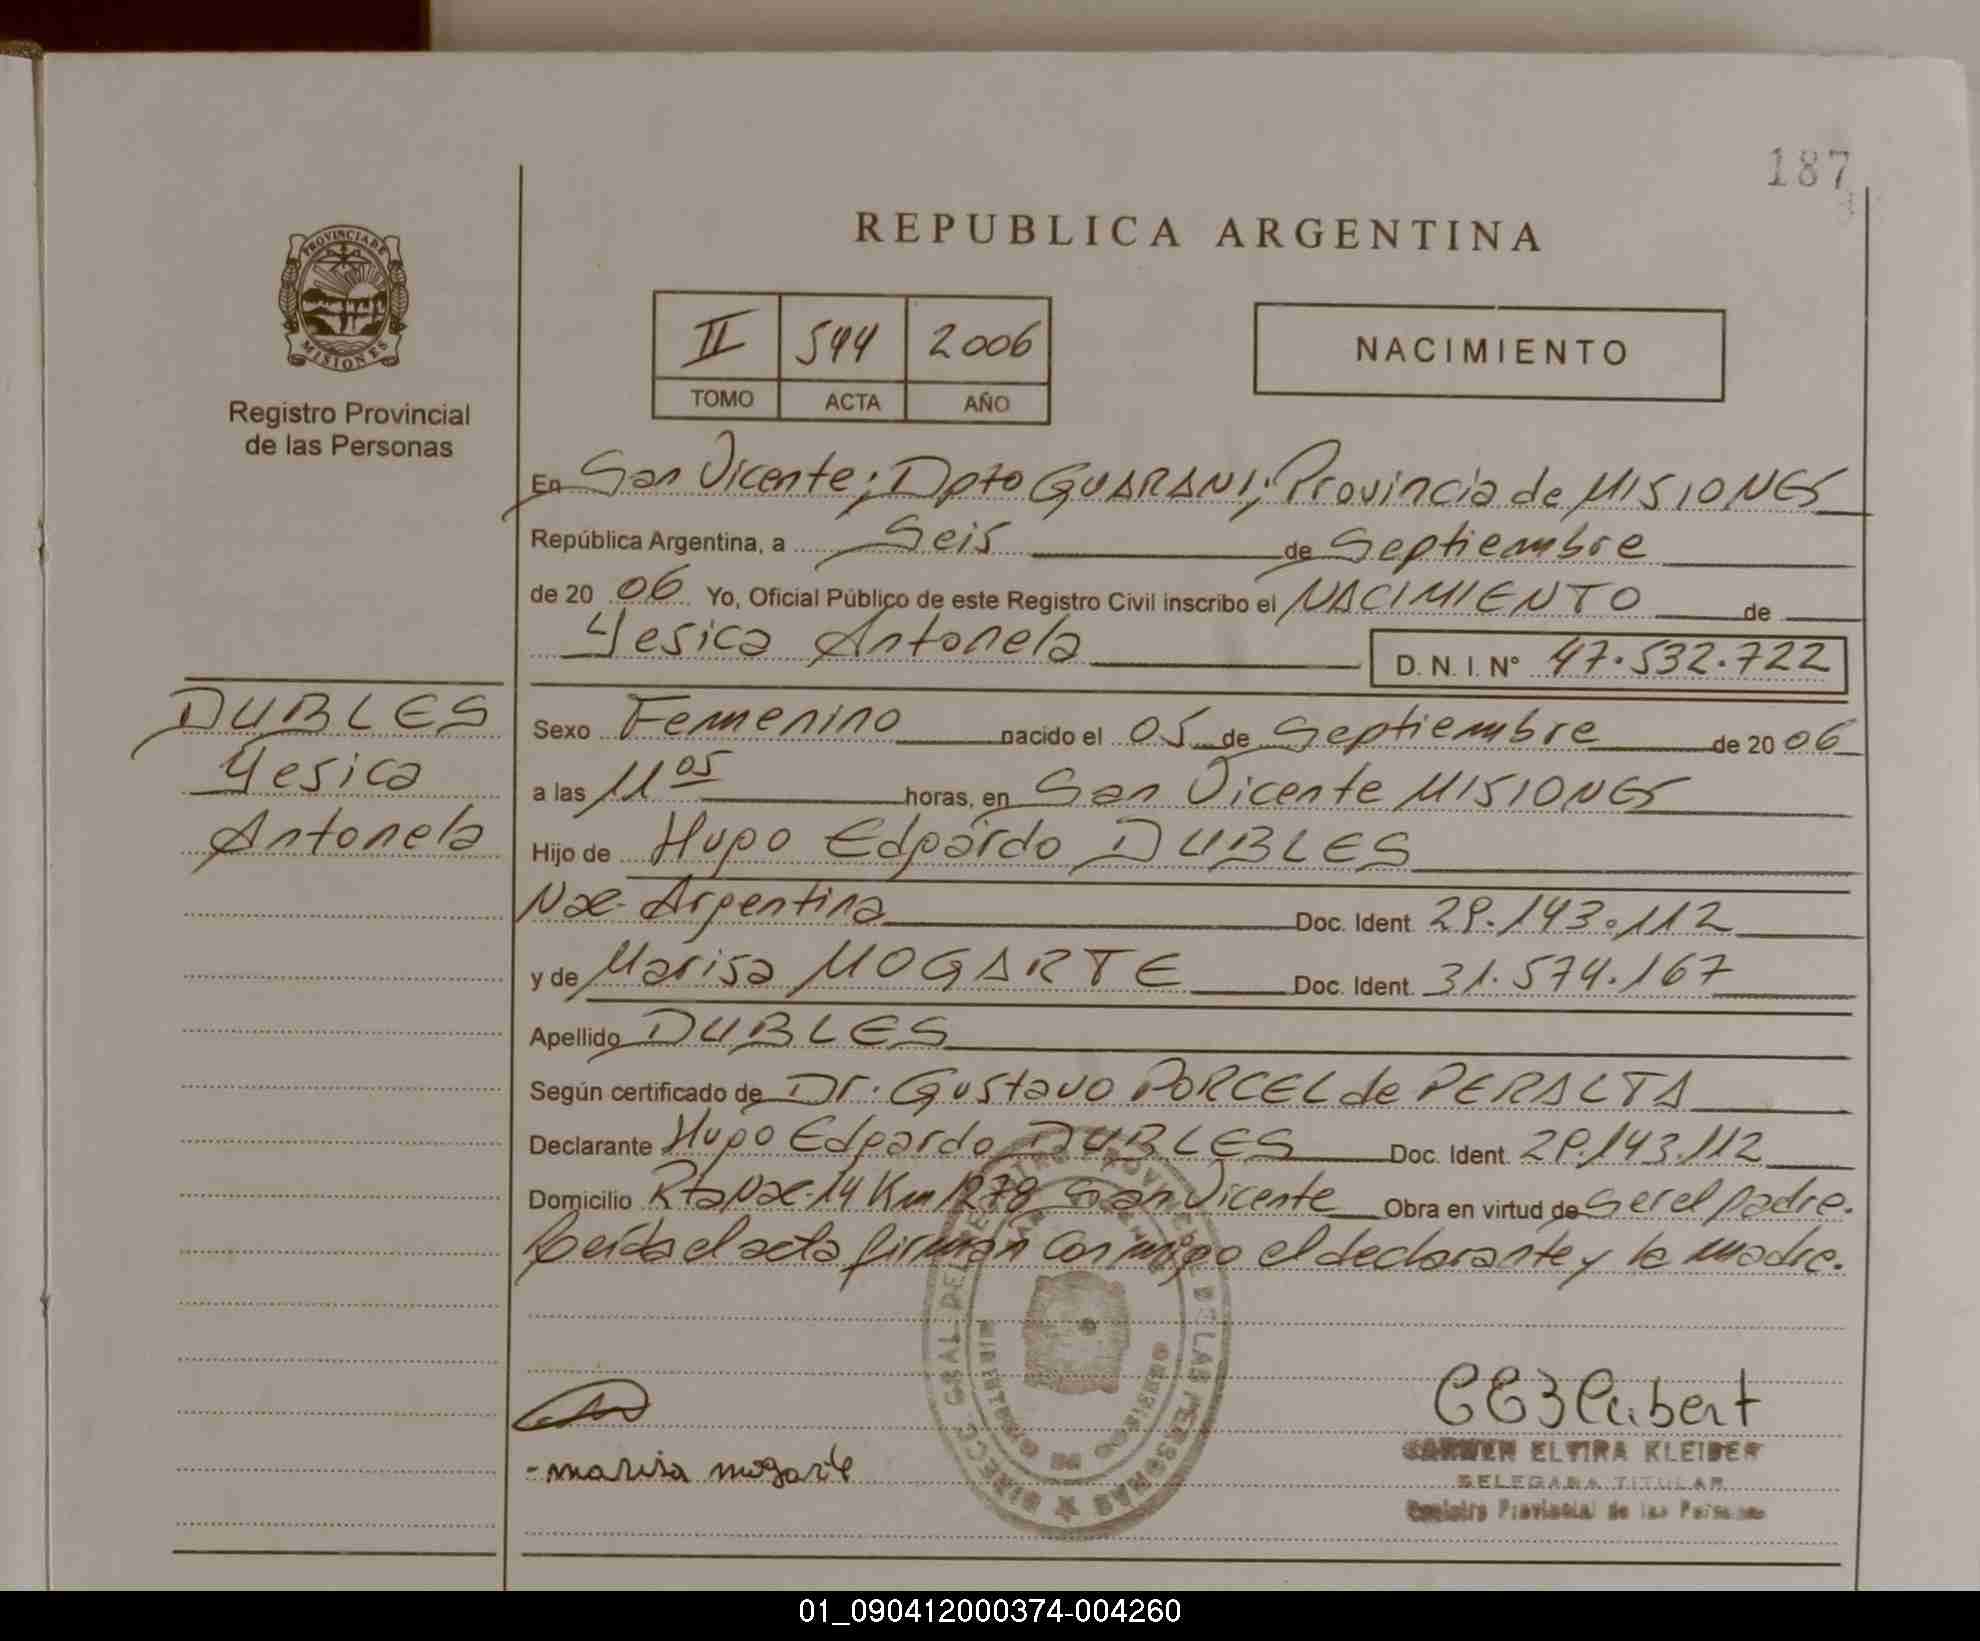 187
REPUBLICA ARGENTINA
PROVINCIA DE
MISIONES
Registro Provincial
de las Personas
II 544 2006
TOMO ACTA AÑO
NACIMIENTO
En San Vicente; Dpto GUARANI; Provincia de MISIONES
República Argentina, a Seis de Septiembre
de 20 06 Yo, Oficial Público de este Registro Civil inscribo el NACIMIENTO de
Yesica Antonela D. N. I. N° 47.532.722
DUBLES
Yesica
Antonela
Sexo Femenino nacido el 05 de Septiembre de 20 06
a las 11 05 horas, en San Vicente MISIONES
Hijo de Hugo Edgardo DUBLES
Nac. Argentina Doc. Ident. 29.143.112
y de Marisa MOGARTE Doc. Ident. 31.574.167
Apellido DUBLES
Según certificado de Dr. Gustavo PORCEL de PERALTA
Declarante Hugo Edgardo DUBLES Doc. Ident. 29.143.112
Domicilio Rta Nac. 14 Km 1278 San Vicente Obra en virtud de ser el padre.
Leída el acta firman conmigo el declarante y la madre.
DIRECC. GRAL. DEL REGISTRO PROVINCIAL DE LAS PERSONAS
- marisa mogarte
CARMEN ELVIRA KLEIBER
DELEGADA TITULAR
Registro Provincial de las Personas
01_090412000374-004260